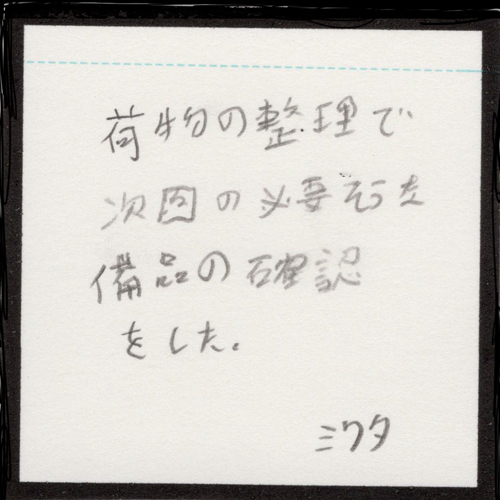 荷物の整理で
次回の必要そうな
備品の確認
をした。
ミワタ